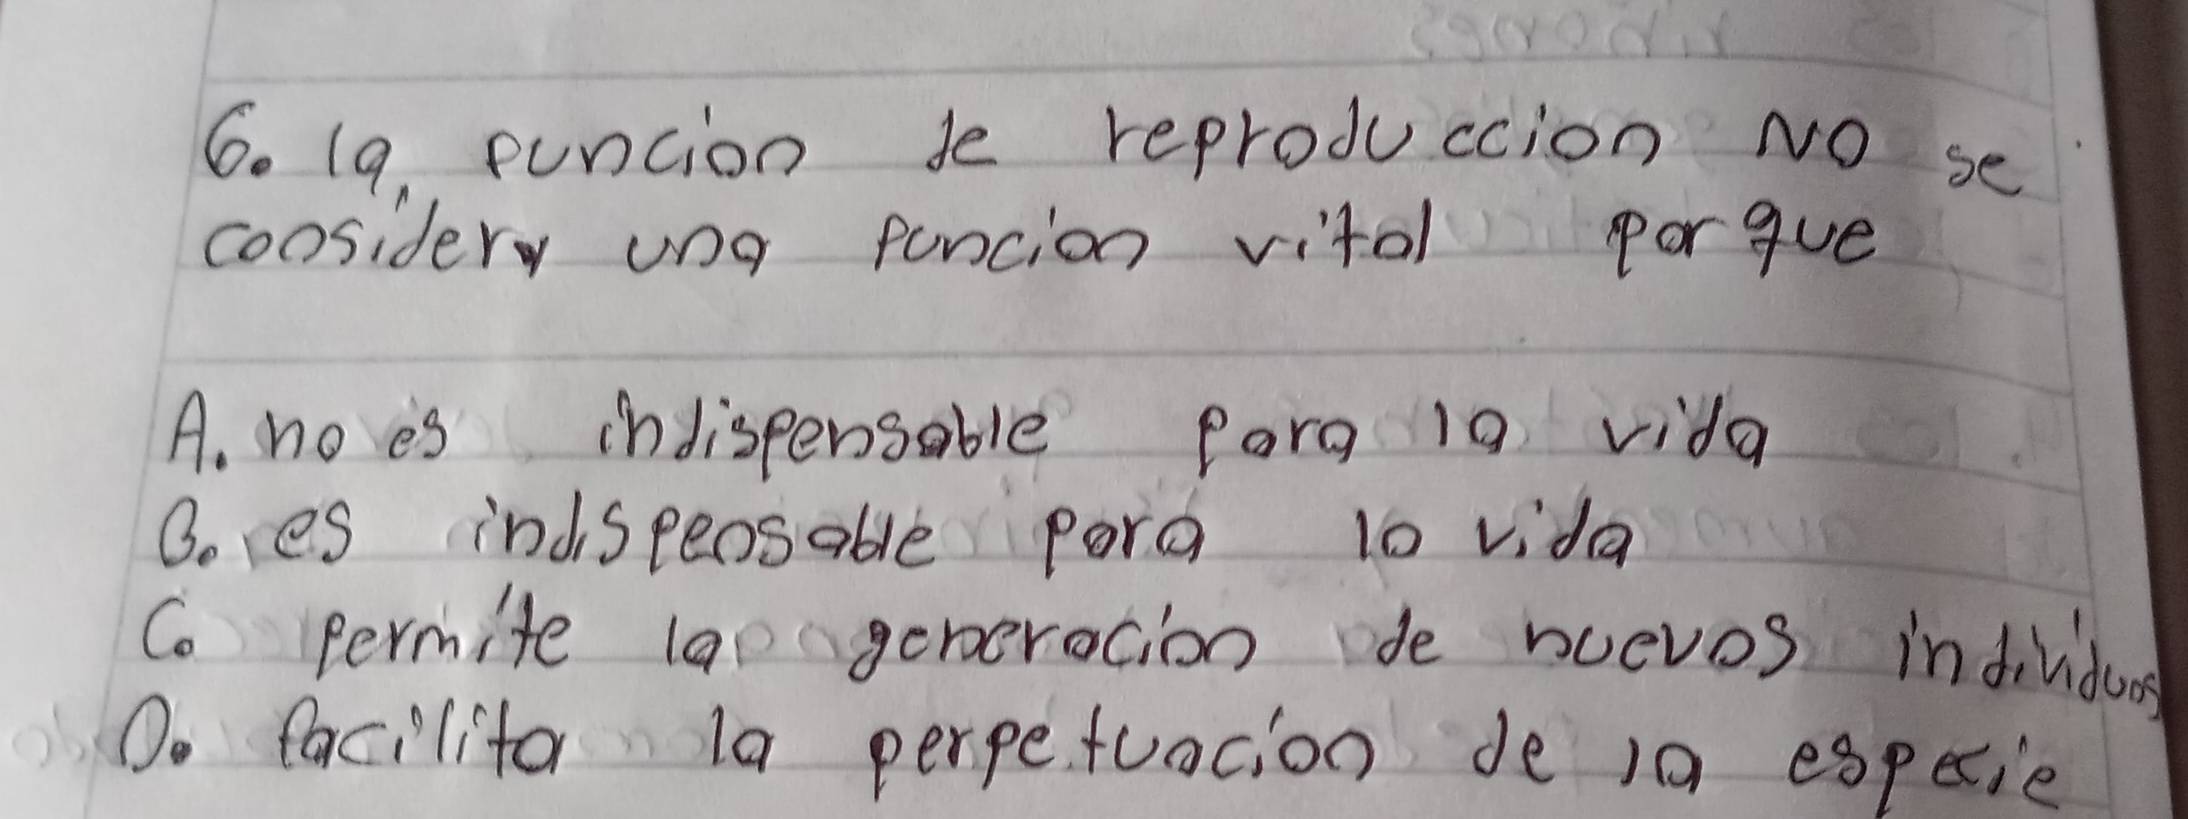 6. la, puncion de reproduccion NO se
considera una puncion vital porque
A. no es indispensable para la vida
B. es indispensable para la vida
C. permite la generacion de nuevos individuos
D. facilita la perpetuacion de la especie